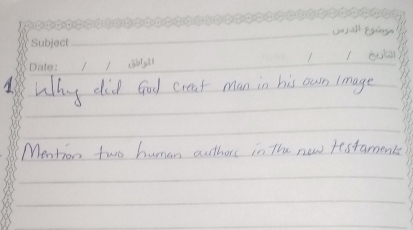 موضوع الدرس
Subject
Date: / / الموافق / / التاريخ
1 Why did God creat man in his own image
Mention two human authors in the new testaments